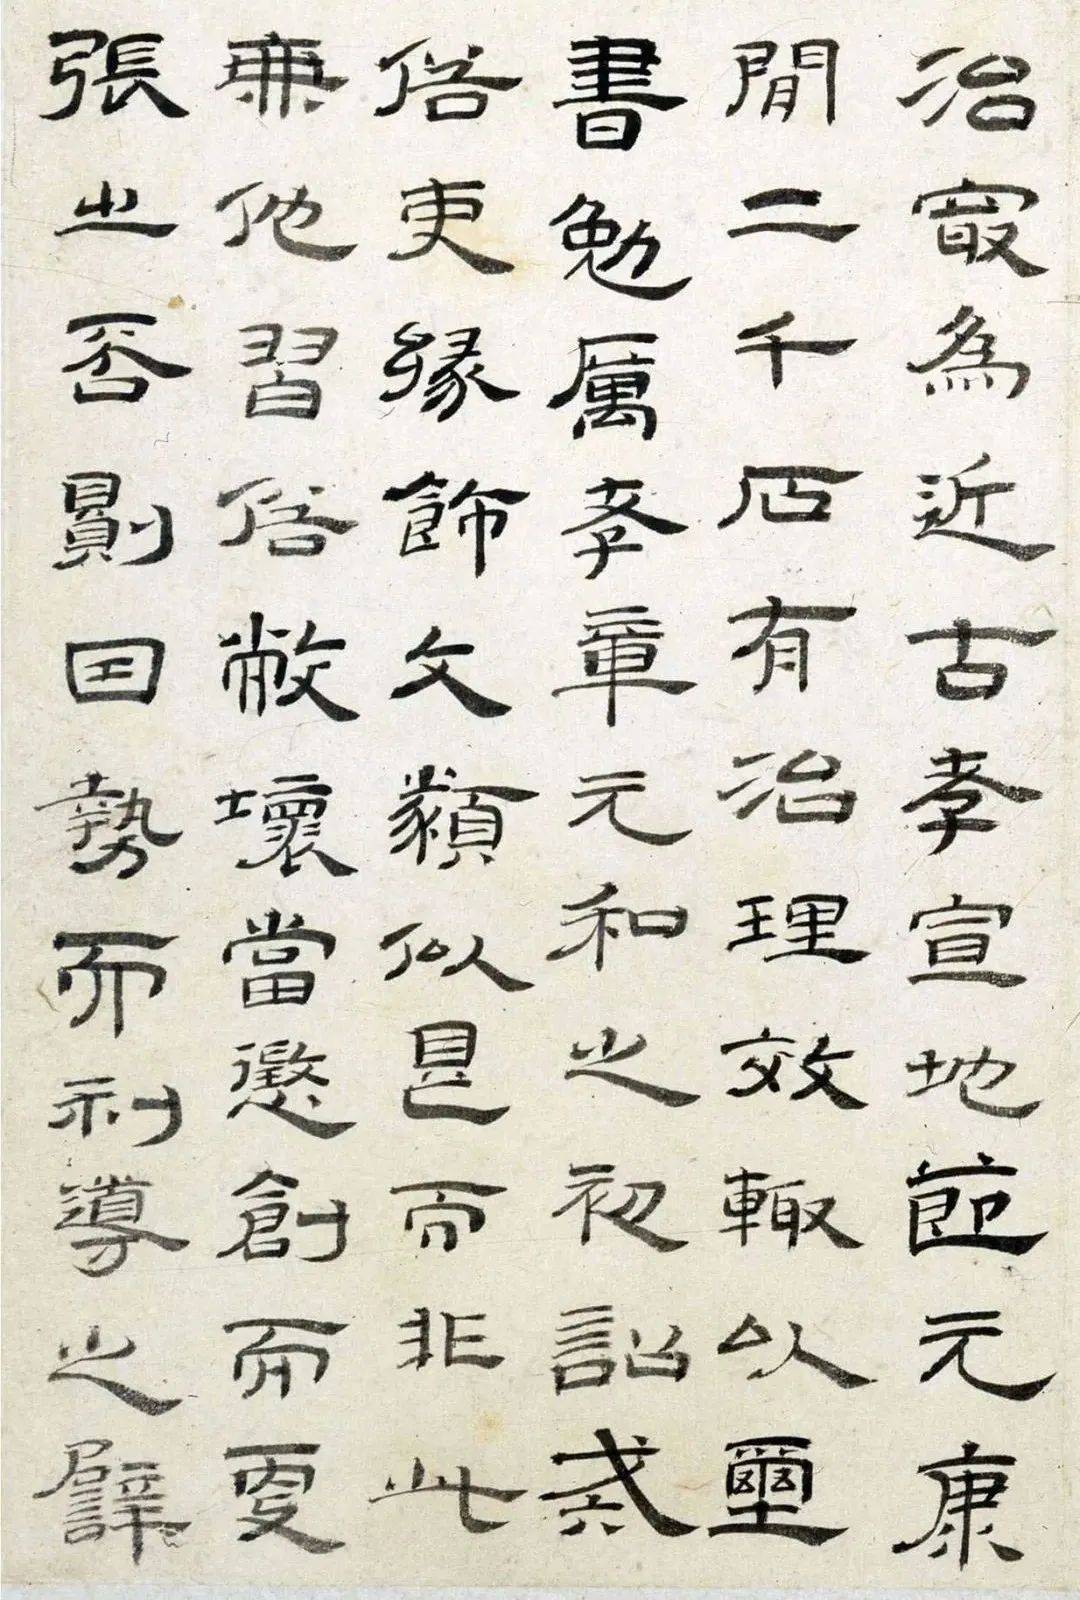 治㝡為近古孝宣地節元康
閒二千石有治理效輒以璽
書勉厲孝章元和之初詔戒
俗吏緣飾文類似是而非此
兼他習俗敝壞當懲創而更
張之否則因勢而利導之譬